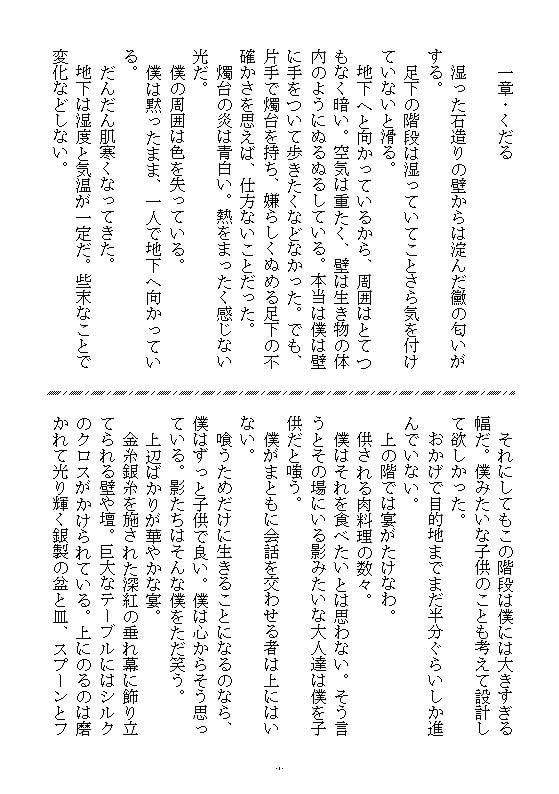 一章・くだる
湿った石造りの壁からは淀んだ黴の匂いが
する。
足下の階段は湿っていてことさら気を付け
ていないと滑る。
地下へと向かっているから、周囲はとてつ
もなく暗い。空気は重たく、壁は生き物の体
内のようにぬるぬるしている。本当は僕は壁
に手をついて歩きたくなどなかった。でも、
片手で燭台を持ち、嫌らしくぬめる足下の不
確かさを思えば、仕方ないことだった。
燭台の炎は青白い。熱をまったく感じない
光だ。
僕の周囲は色を失っている。
僕は黙ったまま、一人で地下へ向かってい
る。
だんだん肌寒くなってきた。
地下は湿度と気温が一定だ。些末なことで
変化などしない。
それにしてもこの階段は僕には大きすぎる
幅だ。僕みたいな子供のことも考えて設計し
て欲しかった。
おかげで目的地までまだ半分ぐらいしか進
んでいない。
上の階では宴がたけなわ。
供される肉料理の数々。
僕はそれを食べたいとは思わない。そう言
うとその場にいる影みたいな大人達は僕を子
供だと嗤う。
僕がまともに会話を交わせる者は上にはい
ない。
喰うためだけに生きることになるのなら、
僕はずっと子供で良い。僕は心からそう思っ
ている。影たちはそんな僕をただ笑う。
上辺ばかりが華やかな宴。
金糸銀糸を施された深紅の垂れ幕に飾り立
てられる壁や壇。巨大なテーブルにはシルク
のクロスがかけられている。上にのるのは磨
かれて光り輝く銀製の盆と皿、スプーンとフ
-1-